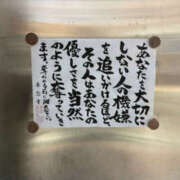 あなたを大切に
しない人の機嫌
を追いかける度に
その人はあなたの
優しさを当然
のように奪っていき
ます。